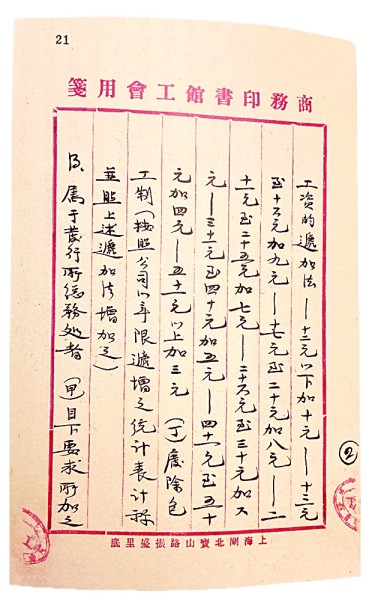 21
商務印書館工會用箋
工资的遞加法——十三元以下加十元——十三元
至十六元加九元——十七元至二十元加八元——二
十一元至二十五元加七元——二十六元至三十元加六
元——三十一元至四十元加五元——四十一元至五十
元加四元——五十一元以上加三元 (丁)廢除包
工制(按照公司以年限遞增之统计表计
並照上述遞加法增加之)
B、屬于發行所總務处者 (甲)目下要求所加之
②
上海閘北寶山路振盛里底